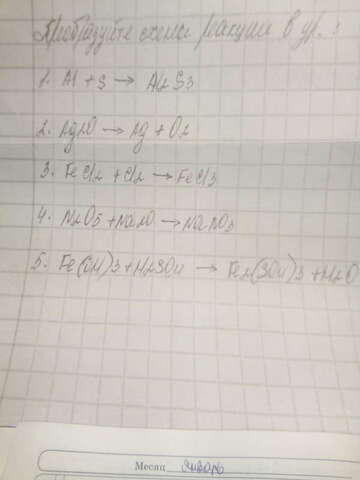 Преобразуйте схемы реакции в ур.:
1. Al + S → Al2S3
2. Ag2O → Ag + O2
3. FeCl2 + Cl2 → FeCl3
4. N2O5 + Na2O → NaNO3
5. Fe(OH)3 + H2SO4 → Fe2(SO4)3 + H2O
Месяц Январь